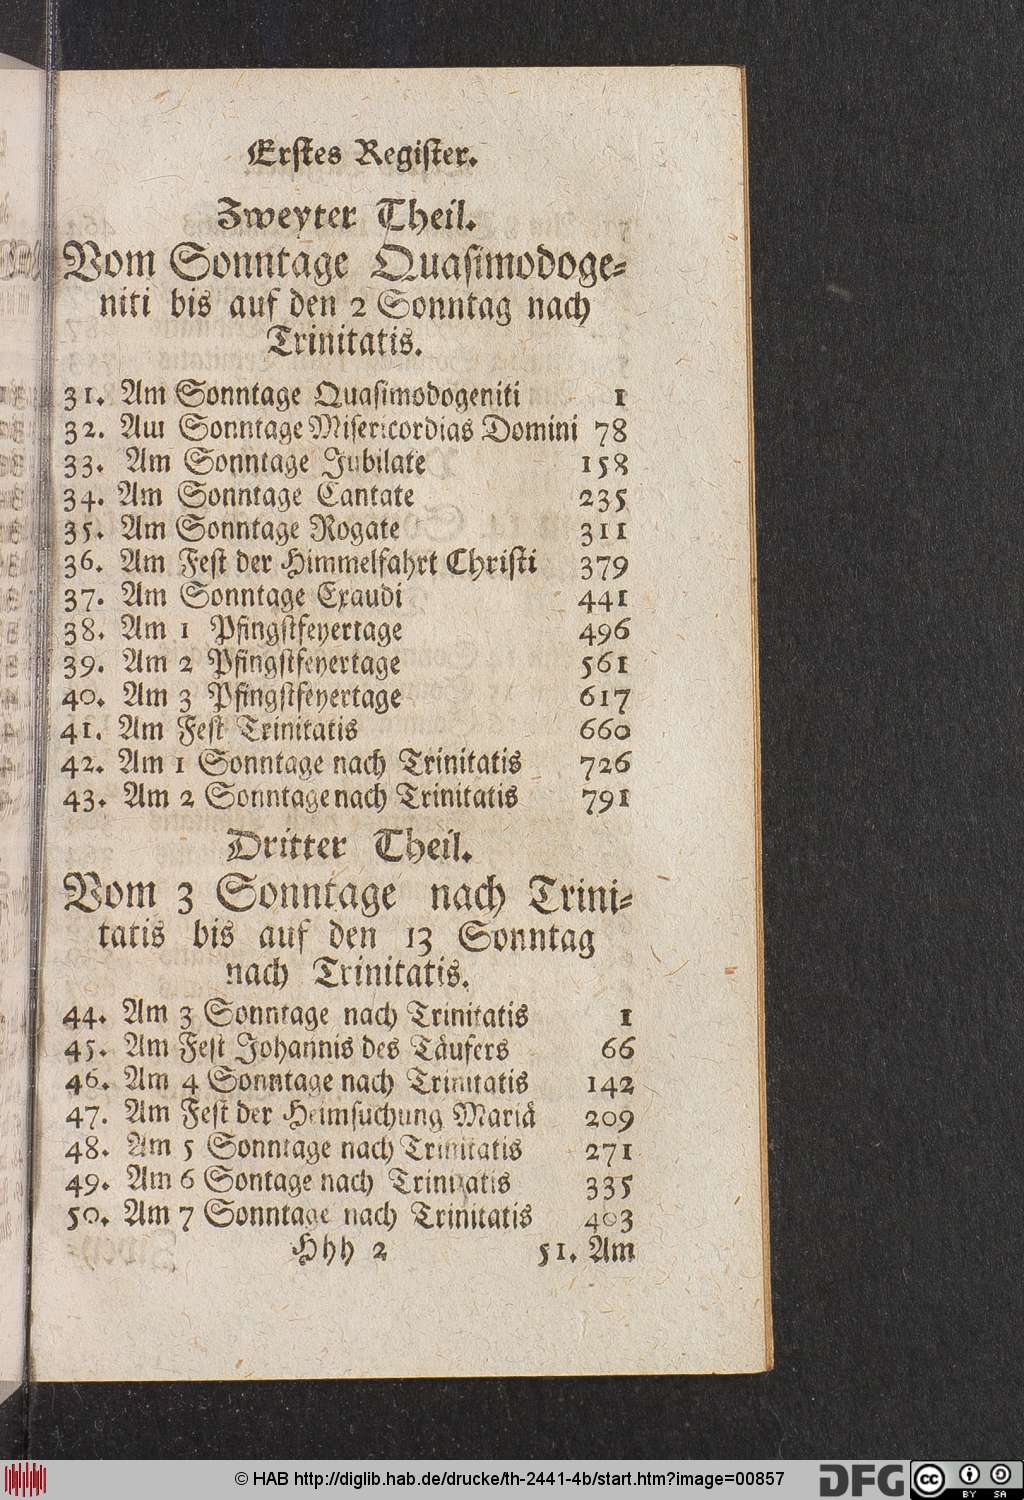 Erstes Register.
Zweyter Theil.
Vom Sonntage Quasimodoge-
niti bis auf den 2 Sonntag nach
Trinitatis.
31. Am Sonntage Quasimodogeniti 1
32. Am Sonntage Misericordias Domini 78
33. Am Sonntage Jubilate 158
34. Am Sonntage Cantate 235
35. Am Sonntage Rogate 311
36. Am Fest der Himmelfahrt Christi 379
37. Am Sonntage Exaudi 441
38. Am 1 Pfingstfeyertage 496
39. Am 2 Pfingstfeyertage 561
40. Am 3 Pfingstfeyertage 617
41. Am Fest Trinitatis 660
42. Am 1 Sonntage nach Trinitatis 726
43. Am 2 Sonntage nach Trinitatis 791
Dritter Theil.
Vom 3 Sonntage nach Trini-
tatis bis auf den 13 Sonntag
nach Trinitatis.
44. Am 3 Sonntage nach Trinitatis 1
45. Am Fest Johannis des Täufers 66
46. Am 4 Sonntage nach Trinitatis 142
47. Am Fest der Heimsuchung Mariä 209
48. Am 5 Sonntage nach Trinitatis 271
49. Am 6 Sontage nach Trinitatis 335
50. Am 7 Sonntage nach Trinitatis 403
Hhh 2 51. Am
© HAB http://diglib.hab.de/drucke/th-2441-4b/start.htm?image=00857
DFG cc BY SA